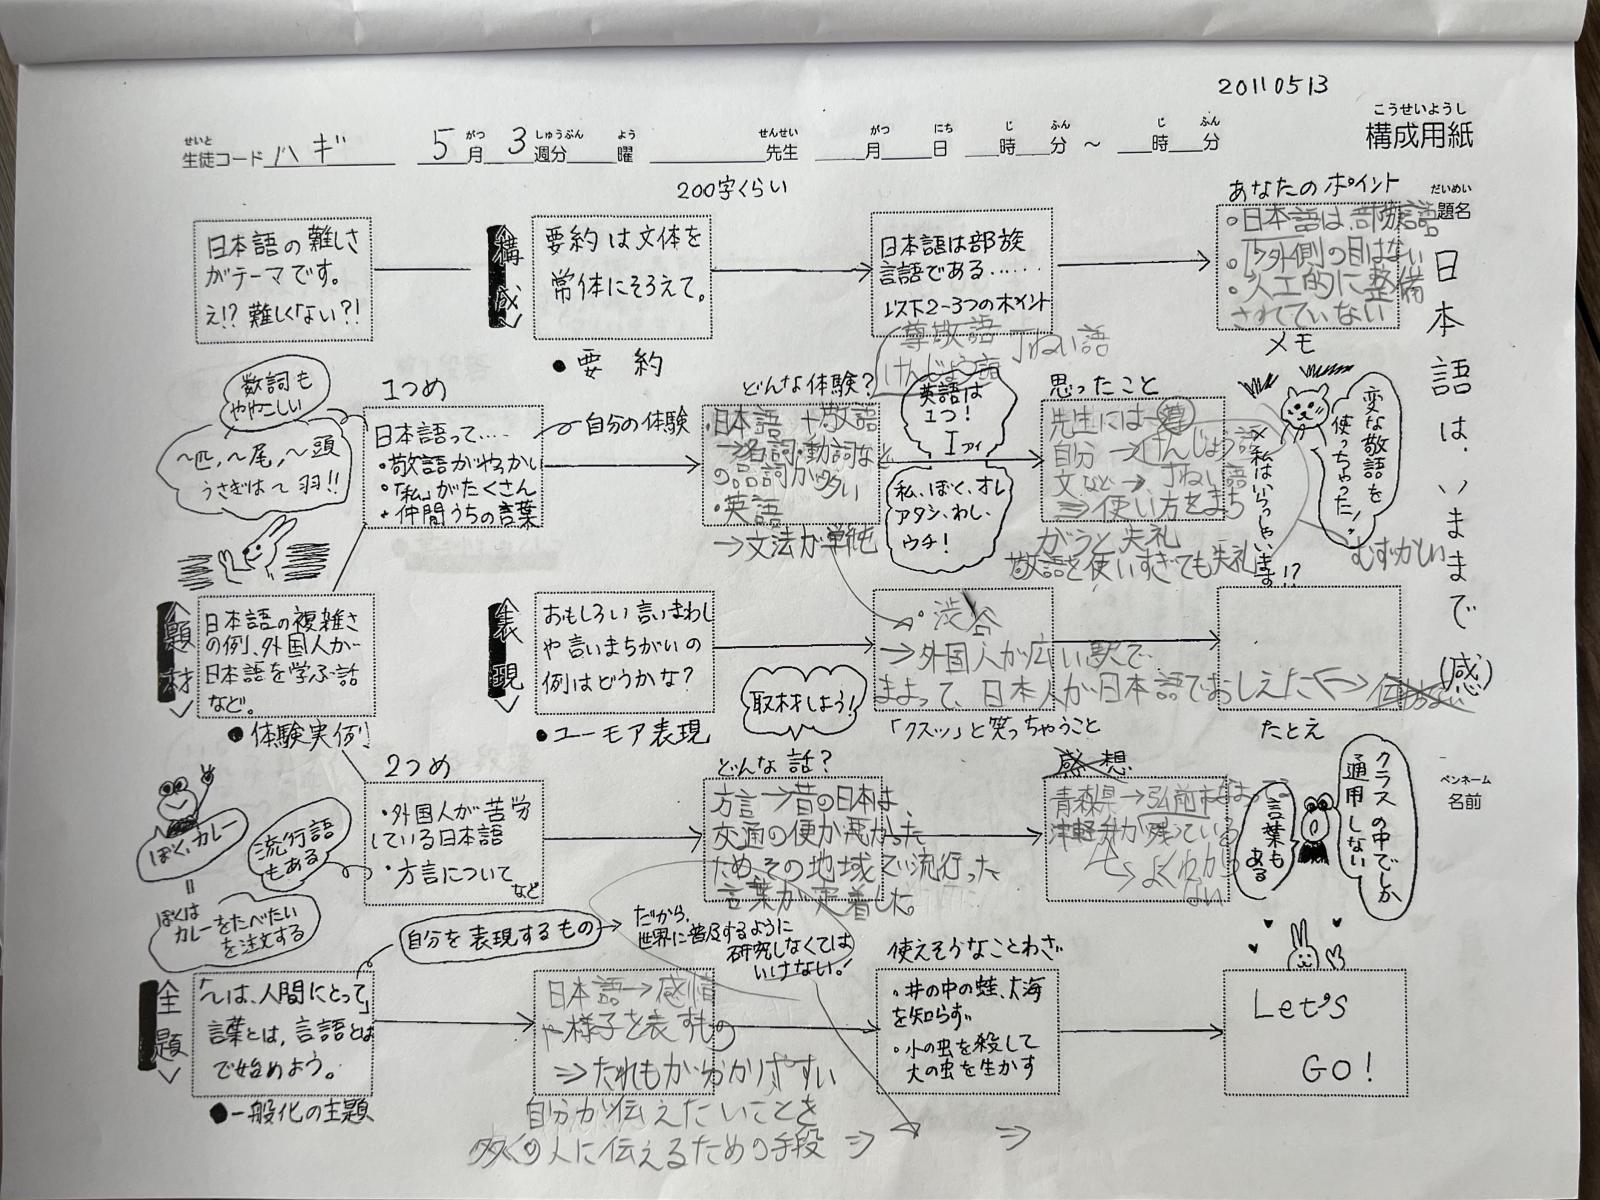 20110513
こうせいようし
構成用紙
せいと がつ しゅうぶん よう せんせい がつ にち じ ふん じ ふん
生徒コード ハギ 5月 3週分 曜 先生 月 日 時 分 ～ 時 分
だいめい
題名
日本語は、いままで(感)
ペンネーム
名前
200字くらい
日本語の難しさ
がテーマです。
え!? 難しくない?!
構成
要約は文体を
常体にそろえて。
●要約
日本語は部族
言語である……
以下2~3つのポイント
あなたのポイント
・日本語は、部族語
・外側の目はない
・人工的に整備
されてていない
メモ
尊敬語 丁ねい語
けんじょう語
数詞も
ややこしい
～匹、～尾、～頭
うさぎは～羽!!
1つめ
日本語って….
・敬語がやっかい
・「私」がたくさん
・仲間うちの言葉
自分の体験
どんな体験?
・日本語 + 敬語
→名詞・動詞など
の品詞が多い
・英語
→文法が単純
英語は
1つ!
I アイ
私、ぼく、オレ
アタシ、わし、
ウチ!
思ったこと
先生には→尊
自分→けんじょう語
文など→丁ねい語
⇒使い方をまち
がうと失礼
敬語を使いすぎても失礼
×私はいらっしゃいます!?
変な敬語を
使っちゃった!
むずかしい
題材
日本語の複雑さ
の例、外国人が
日本語を学ぶ話
など。
●体験実例
表現
おもしろい言いまわし
や言いまちがいの
例はどうかな?
●ユーモア表現
取材しよう!
・渋谷
→外国人が広い訳で、
ままって、日本人が日本語でおしえたく
「クスッ」と笑っちゃうこと
たとえ
2つめ
・外国人が苦労
している日本語
・方言について
など
どんな話?
方言→昔の日本は、
交通の便が悪かった
ため、その地域で流行った
言葉が定着した。
感想
青森県→弘前市なまって、
津軽弁が残っている
→よくわから
ない
言葉も
ある
クラスの中でしか
通用しない
ぼく、カレー
=
ぼくは
カレーをたべたい
を注文する
流行語
もある
自分を表現するもの
だから、
世界に普及するように
研究しなくては
いけない!
全題
「～は、人間にとって」
言葉とは、言語とは
で始めよう。
●一般化の主題
日本語→感情
や様子を表すもの
⇒だれもがわかりやすい
自分が伝えたいことを
多くの人に伝えるための手段 ⇒ ⇒
使えそうなことわざ
・井の中の蛙、大海
を知らず
・小の虫を殺して
大の虫を生かす
Let's
GO!